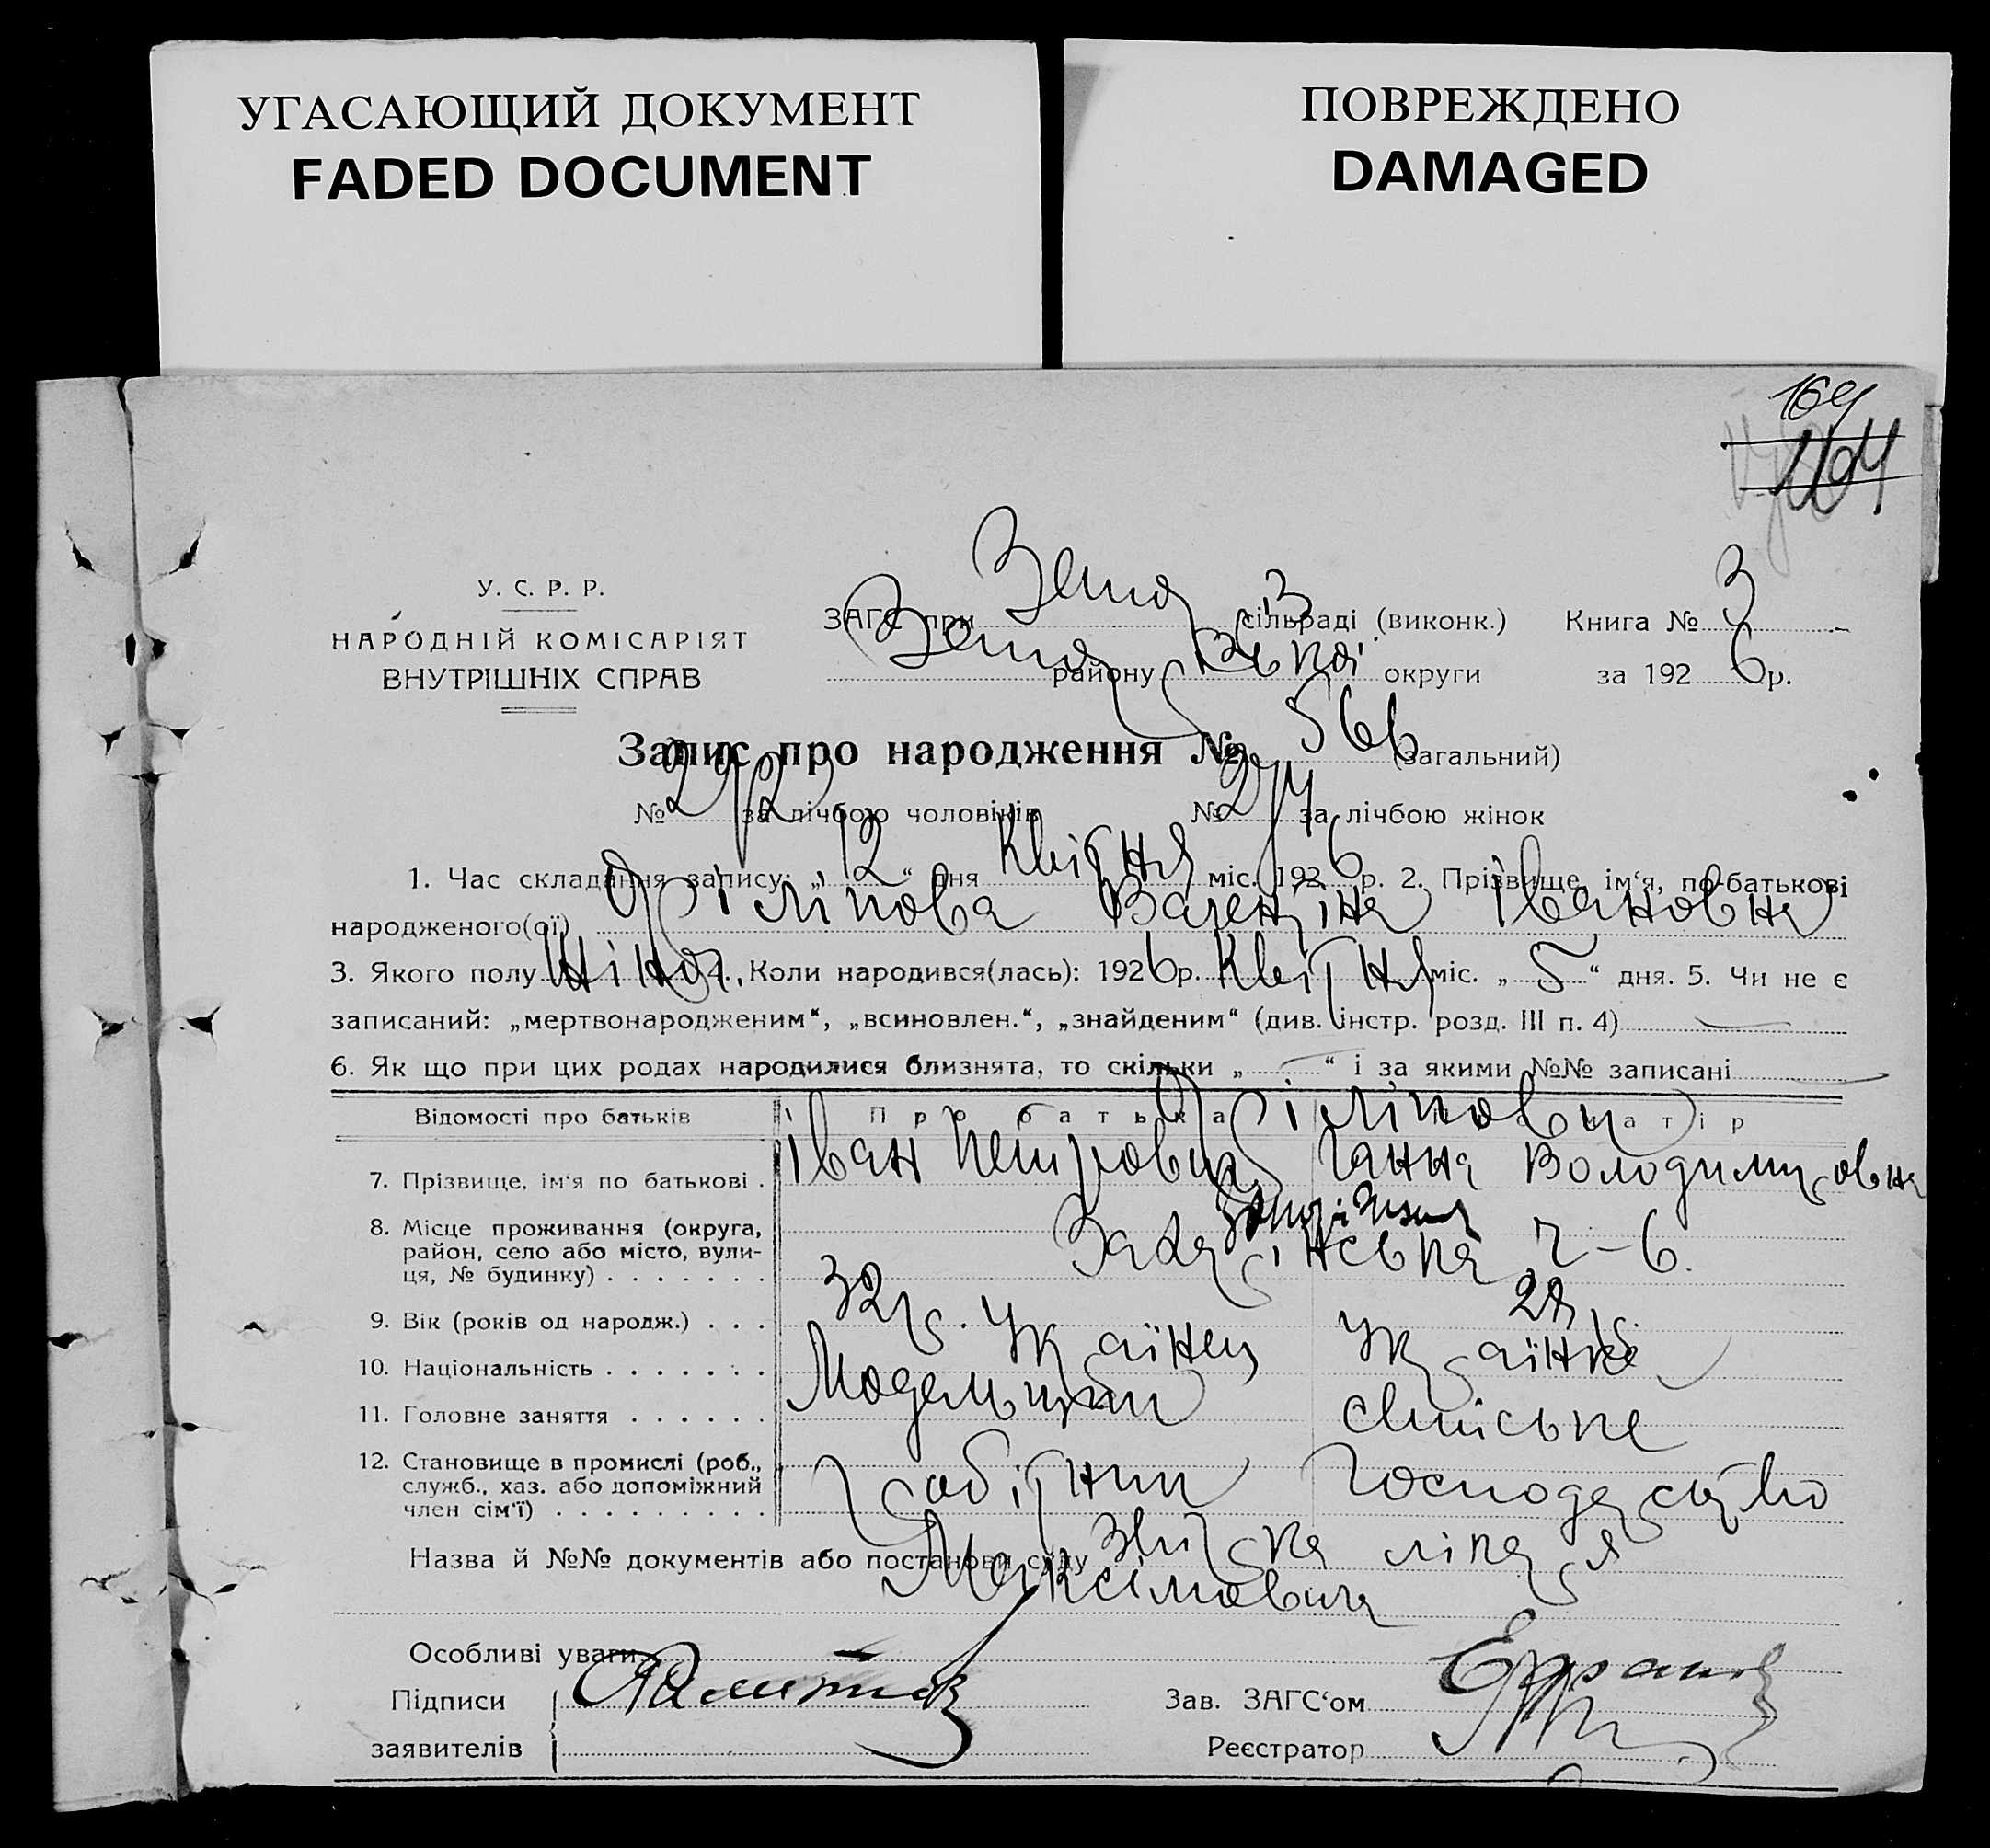 УГАСАЮЩИЙ ДОКУМЕНТ
FADED DOCUMENT
ПОВРЕЖДЕНО
DAMAGED
169
У. С. Р. Р.
НАРОДНІЙ КОМІСАРІЯТ
ВНУТРІШНІХ СПРАВ
ЗАГС при сільраді (виконк.) Книга № 3
району округи за 1926 р.
Запис про народження № 566 (загальний)
№ 292 за лічбою чоловіків № 274 за лічбою жінок
1. Час складання запису: „12“ дня Квітня міс. 1926 р. 2. Прізвище, ім‘я, по-батькові
народженого(ої) Філіпова Валентіна Івановна
3. Якого полу Жіноч. 4. Коли народився(лась): 1926 р. Квітня міс. „5“ дня. 5. Чи не є
записаний: „мертвонародженим“, „всиновлен.“, „знайденим“ (див. інстр. розд. III п. 4)
6. Як що при цих родах народилися близнята, то скільки „ “ і за якими №№ записані
Відомості про батьків Про батька матір
Філіпови
7. Прізвище, ім‘я по батькові . Іван Петрович Ганна Володимировна
8. Місце проживання (округа,
район, село або місто, вули-
ця, № будинку) . . . . . . . ч - 6.
9. Вік (років од народж.) . . . 32 р.
10. Національність . . . . . . . Українец Українка
11. Головне заняття . . . . . . Модельщик свійське
12. Становище в промислі (роб.,
служб., хаз. або допоміжний
член сім‘ї) . . . . . . . . . робітник господарство
Назва й №№ документів або постанови суду Звістка лікаря
Максімовича
Особливі уваги
Підписи
заявителів
Зав. ЗАГС‘ом
Реєстратор